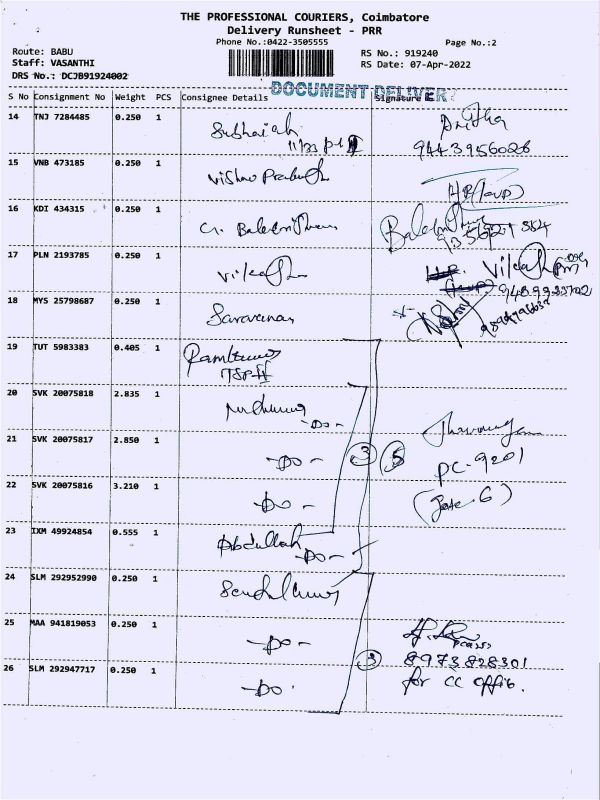 THE PROFESSIONAL COURIERS, Coimbatore
Delivery Runsheet - PRR
Phone No.:0422-3505555
Page No.:2
Route: BABU
RS No.: 919240
Staff: VASANTHI
RS Date: 07-Apr-2022
DRS No.: DCJB91924002
DOCUMENT DELIVER
S No Consignment No Weight PCS Consignee Details Signature
14 TNJ 7284485 0.250 1 Subhaiah
9443956026
15 VNB 473185 0.250 1 Vishnu
16 KDI 434315 0.250 1
17 PLN 2193785 0.250 1
18 MYS 25798687 0.250 1 Saravanan
19 TUT 5983383 0.405 1
20 SVK 20075818 2.835 1
-DO-
21 SVK 20075817 2.850 1 -DO- 3 5
PC-9201
22 SVK 20075816 3.210 1 -DO- (Gate-6)
23 IXM 49924854 0.555 1 Abdullah
-DO-
24 SLM 292952990 0.250 1
25 MAA 941819053 0.250 1 -DO-
3 8973828301
26 SLM 292947717 0.250 1 -DO- for CC